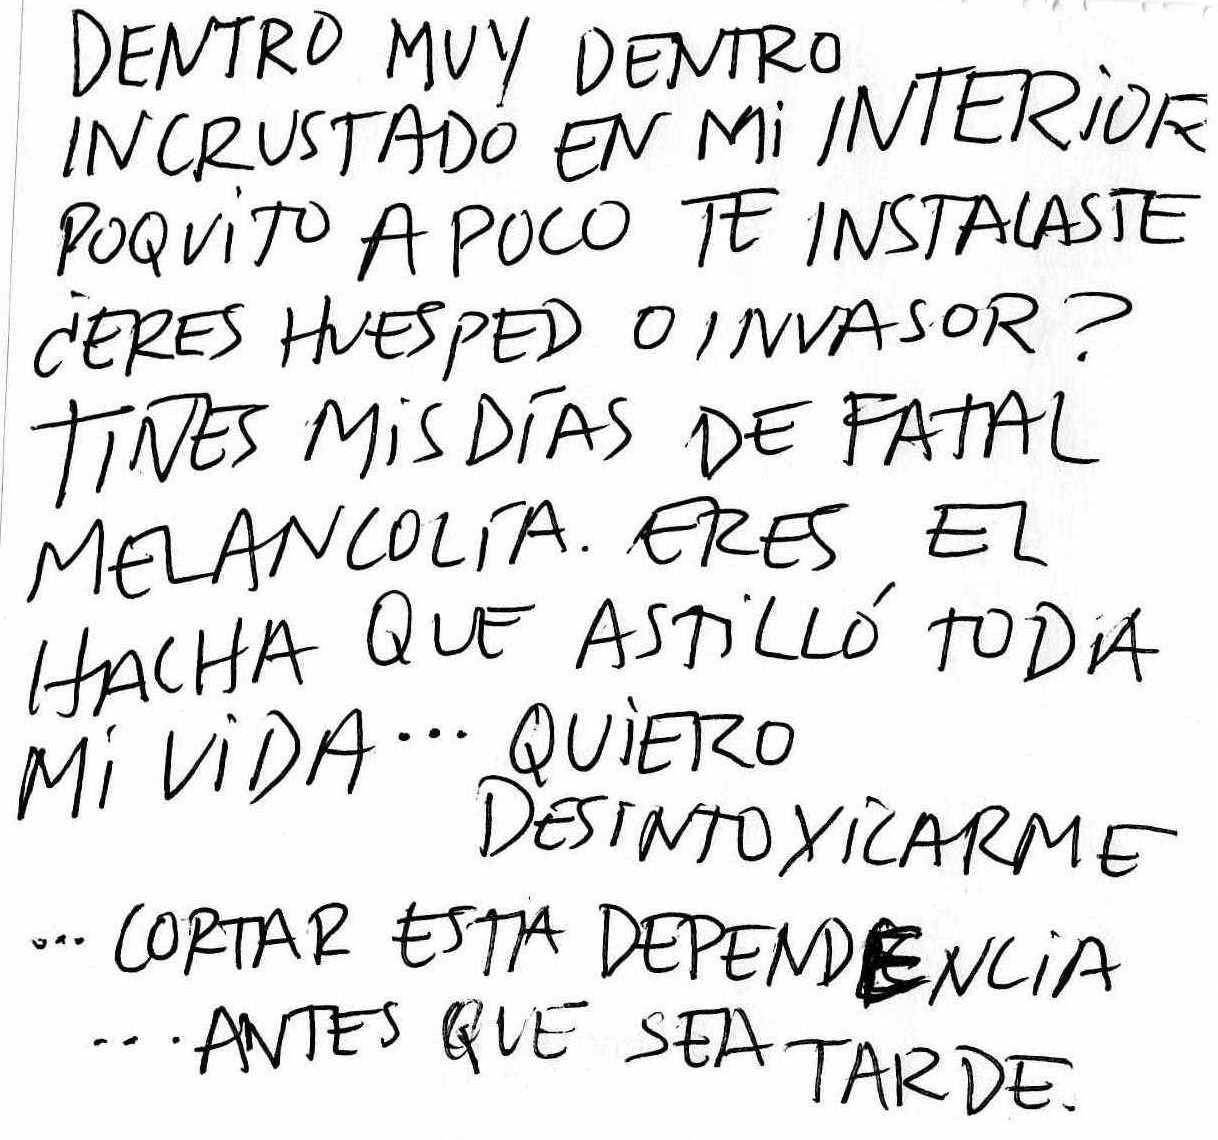 DENTRO MUY DENTRO
INCRUSTADO EN Mi INTERiOR
POQUiTO A POCO TE INSTALASTE
¿ERES HUESPED O INVASOR?
TIÑES MiS DÍAS DE FATAL
MELANCOLÍA. ERES EL
HACHA QUE ASTiLLÓ TODA
Mi ViDA... QUiERO
DESINTOXiCARME
... CORTAR ESTA DEPENDENCiA
... ANTES QUE SEA TARDE.